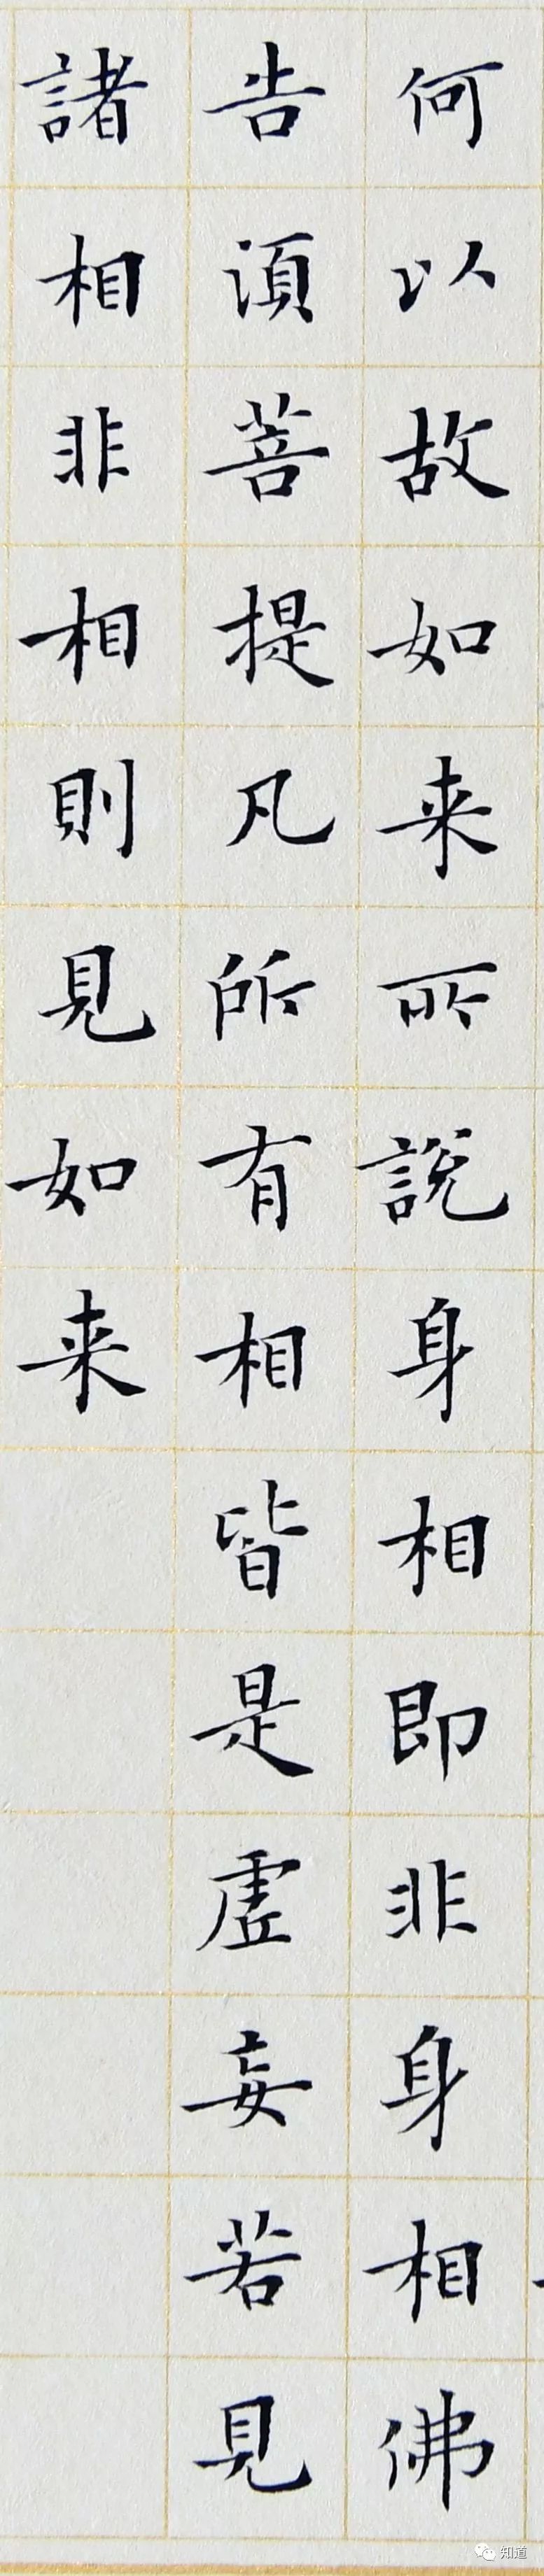 何以故如来所説身相即非身相佛
告湏菩提凡所有相皆是虚妄若見
諸相非相則見如来
知道